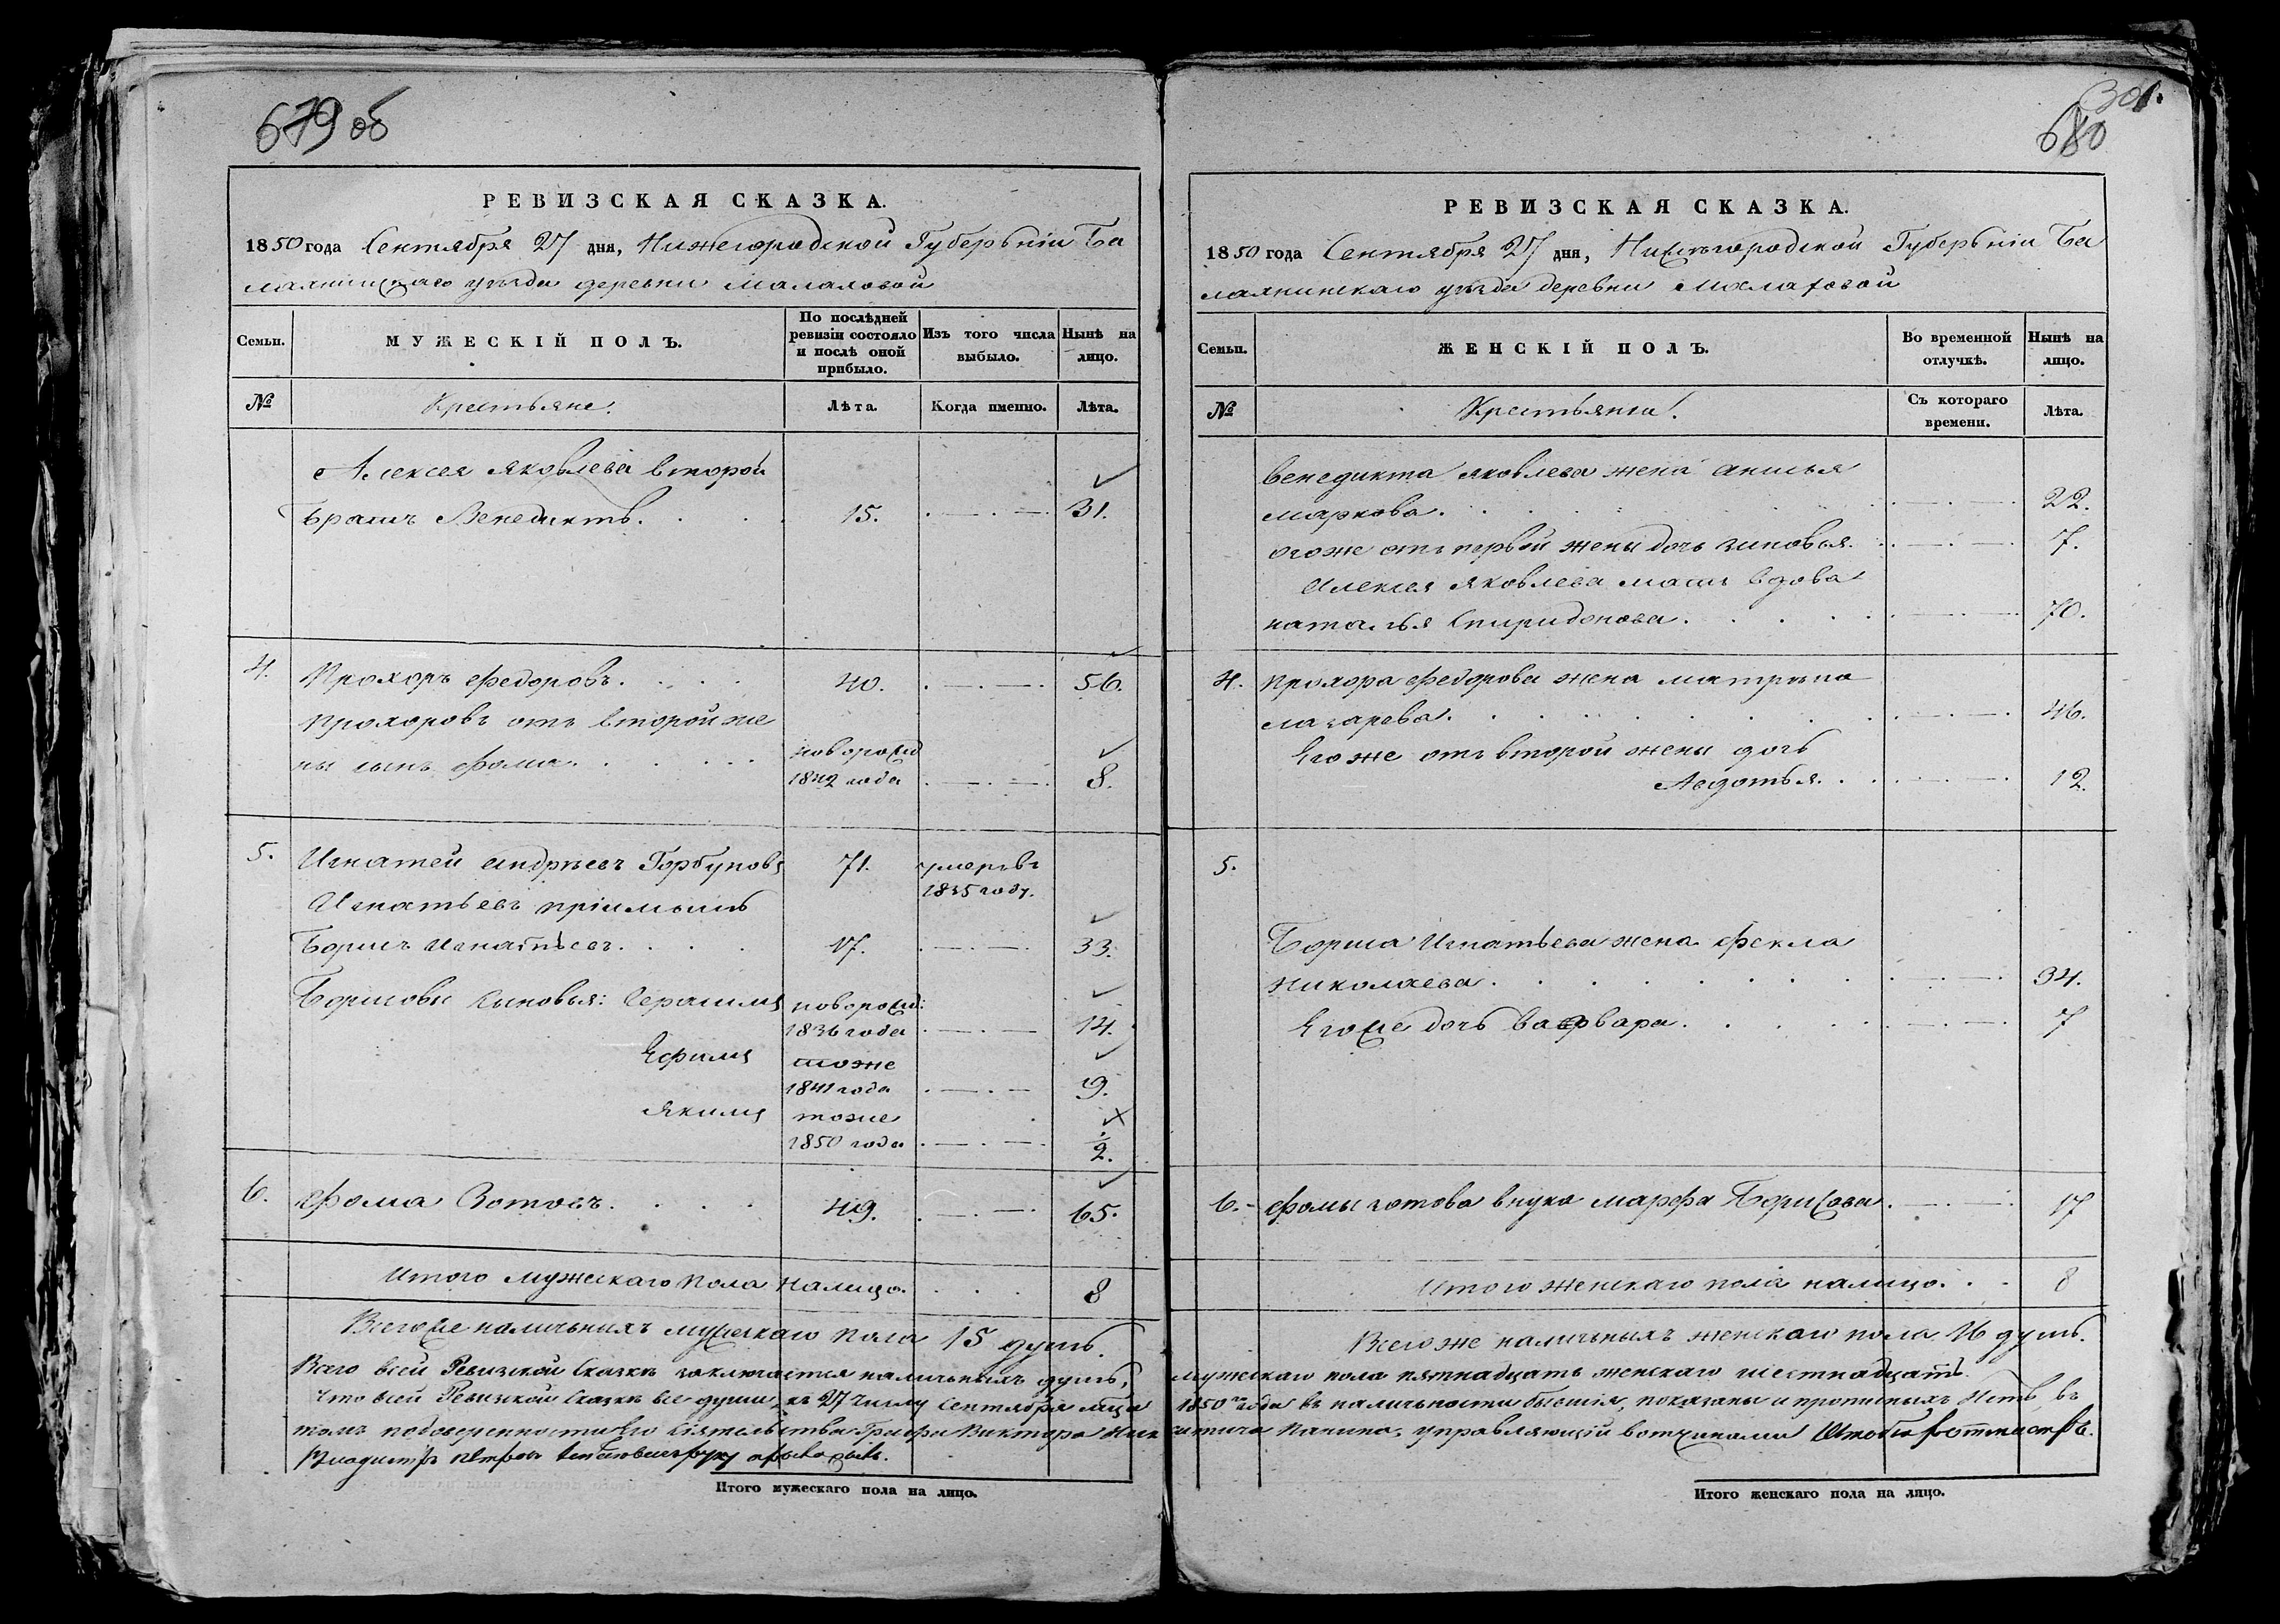 679 об
РЕВИЗСКАЯ СКАЗКА.
1850 года Сентября 27 дня, Нижегородской Губерьніи Ба
лахнинскаго уезда деревни Малаховой
Семьи.
МУЖЕСКІЙ ПОЛЪ.
По послѣдней ревизіи состояло и послѣ оной прибыло.
Изъ того числа выбыло.
Нынѣ на лицо.
№
Крестьяне.
Лѣта.
Когда именно.
Лѣта.
Алексея Яковлева второй
братъ Венедиктъ. 15. 31.
4. Прохоръ Федоровъ. 40. 56.
Прохоровъ отъ второй же
ны сынъ Фома. новорожд 1842 года 8.
5. Игнатей Андреевъ Горбуновъ 71. умеръ въ 1835 году.
Игнатьевъ пріимышъ
Борисъ Игнатьевъ. 17. 33.
Борисовы сыновья: Герасимъ новорожд: 1836 года 14.
Ефимъ тоже 1841 года 9.
Якимъ тоже 1850 года 1/2.
6. Фома Зотовъ. 49. 65.
Итого мужескаго пола налицо. 8
Всегоже наличныхъ мужескаго пола 15 душъ.
Всего всей Ревизской Сказке заключается наличныхъ душъ,
Что всей Ревизской Сказке все души, къ 27 числу Сентября мца
томъ по доверенности Его Сіятельства Графа Виктора Ник
Итого мужескаго пола на лицо.
301.
680
РЕВИЗСКАЯ СКАЗКА.
1850 года Сентября 27 дня, Нижегородской Губерьніи Ба
лахнинскаго уезда деревни Малаховой
Семьи.
ЖЕНСКІЙ ПОЛЪ.
Во временной отлучкѣ.
Нынѣ на лицо.
№
Крестьянки.
Съ котораго времени.
Лѣта.
Венедикта Яковлева жена Анисья
Маркова. 22.
Егоже отъ первой жены дочь Зиновья. 7.
Алексея Яковлева мать вдова
Наталья Спиридонова. 70.
4. Прохора Федорова жена Матрена
Лазарева. 46.
Его же отъ второй жены дочь
Авдотья. 12.
5.
Бориса Игнатьева жена Фекла
Николаева. 34.
Егоже дочь Варвара. 7
6. Фомы Зотова внука Марфа Борисова. 17
Итого женскаго пола налицо. 8
Всего же наличныхъ женскаго пола 16 душъ.
мужескаго пола пятнадцать женскаго шестнадцать.
1850 года въ наличности бывшія, показаны и прописныхъ нетъ, въ
итича Панина, управляющій вотчинами
Итого женскаго пола на лицо.